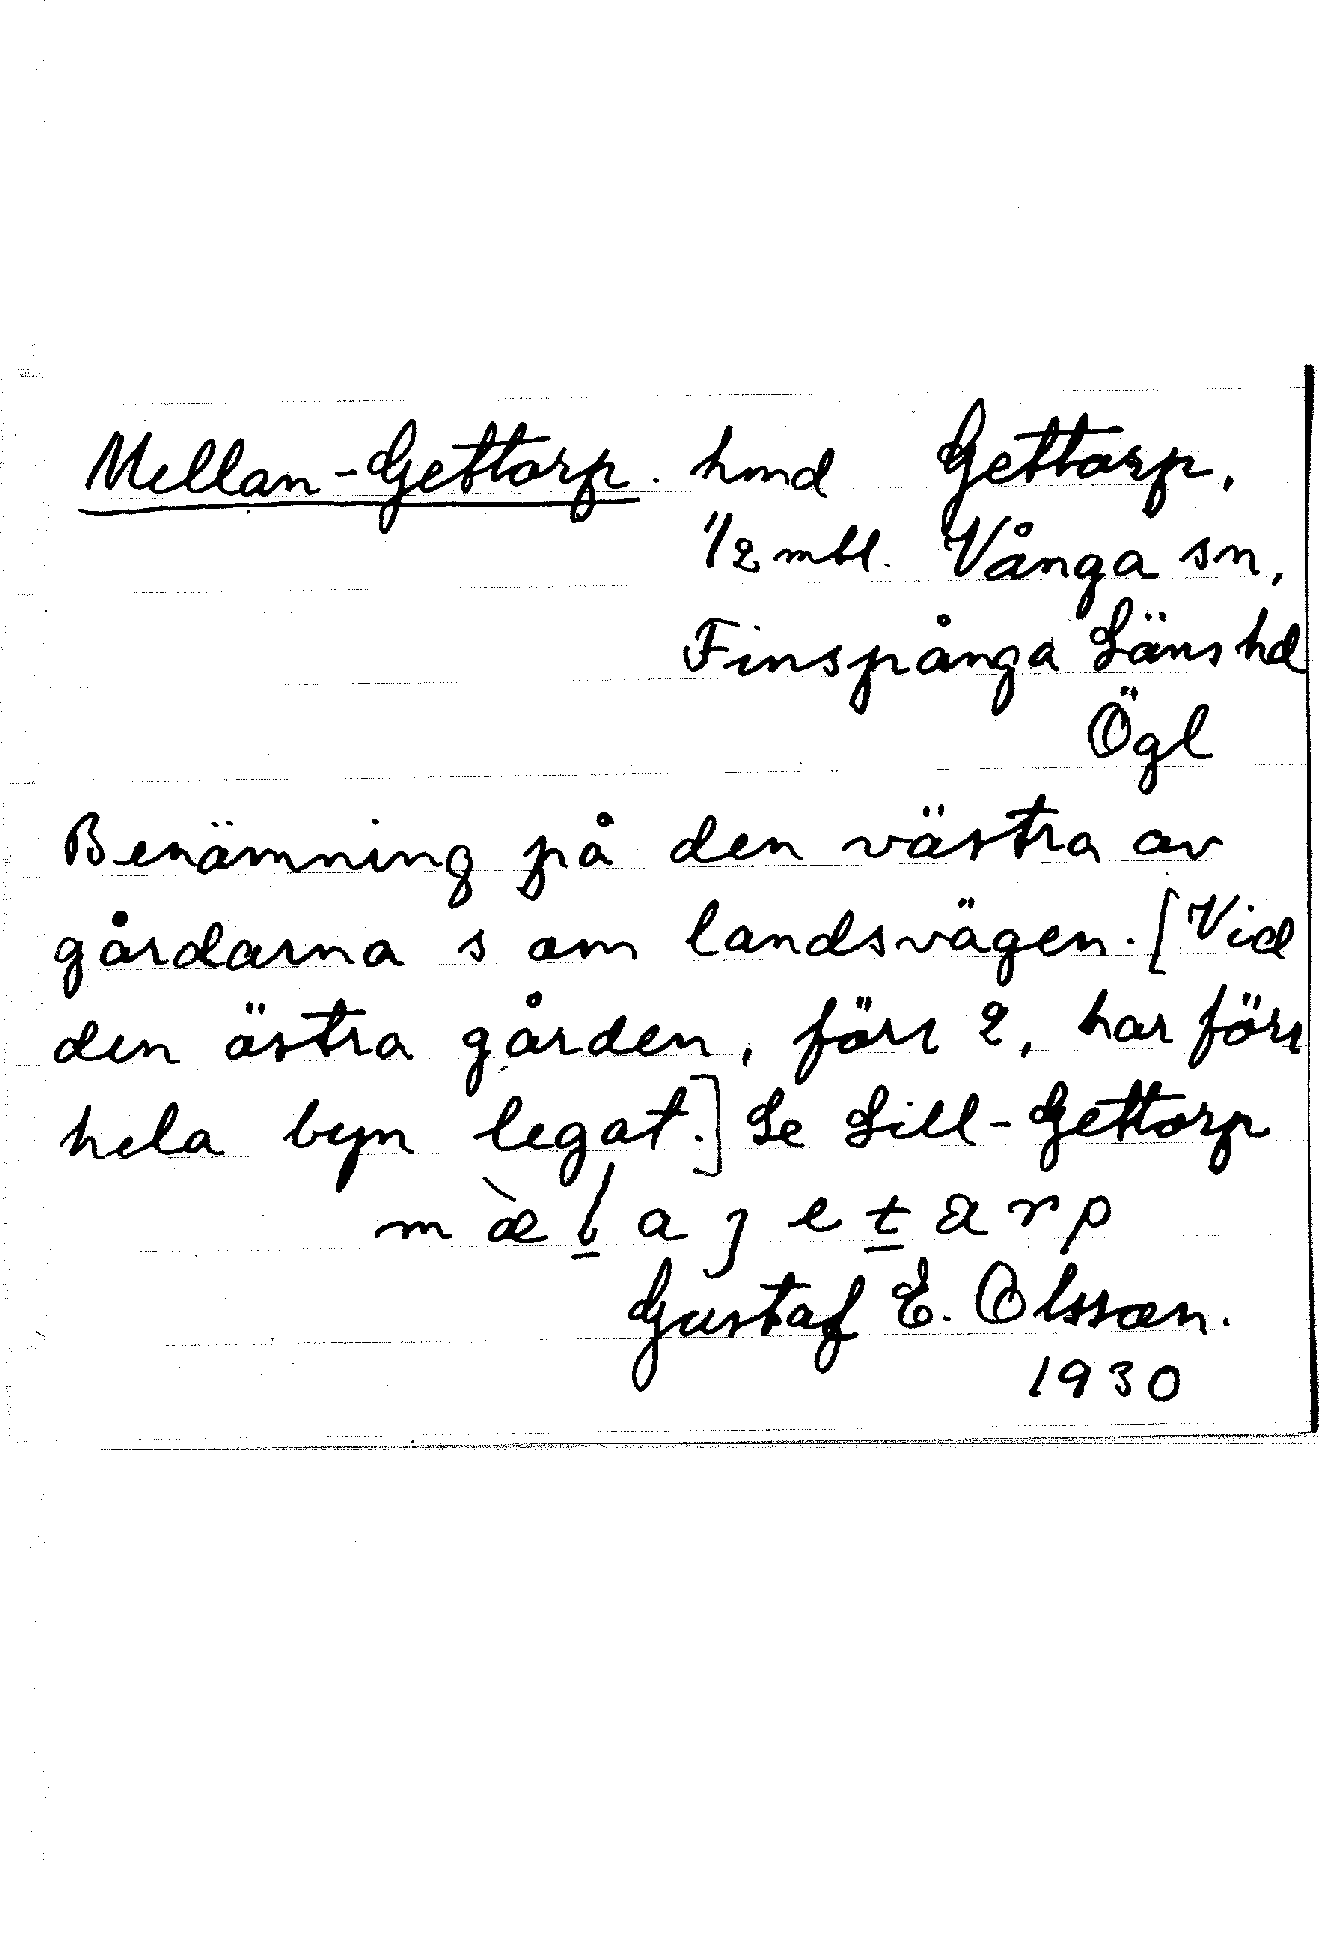 Mellan-Gettorp. hmd Gettorp,
1/2 mtl. Vånga sn,
Finspånga Läns hd
Ögl
Benämning på den västra av
gårdarna s om landsvägen. [Vid
den östra gården, förs 2, har förs
hela byn legat.] Se Lill-Gettorp
m æ̀ l̲ a j e t̲ a r p
Gustaf E. Olsson.
1930